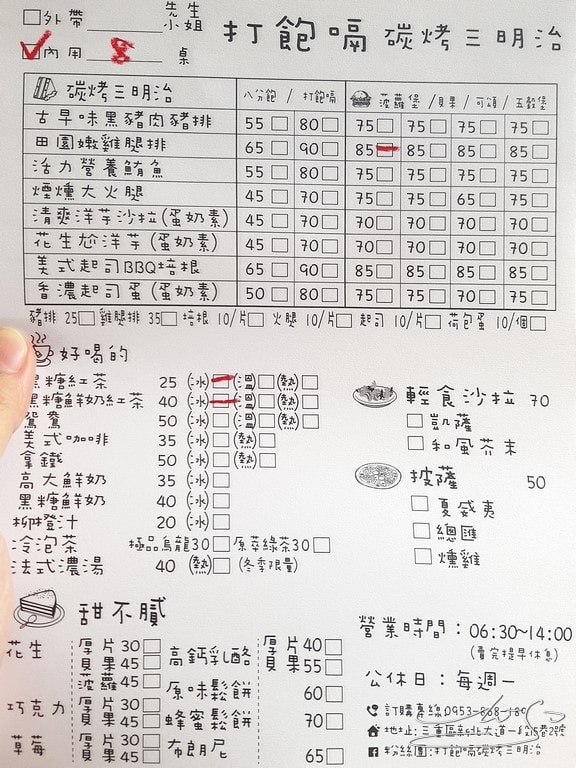 □外帶______先生 小姐
□內用 8 桌
打飽嗝 碳烤三明治
碳烤三明治 八分飽 / 打飽嗝 菠蘿堡 / 貝果 / 可頌 / 五穀堡
古早味黑豬肉豬排 55□ 80□ 75□ 75□ 75□ 75□
田園嫩雞腿排 65□ 90□ 85□ 85□ 85□ 85□
活力營養鮪魚 55□ 80□ 75□ 75□ 75□ 75□
煙燻大火腿 45□ 70□ 75□ 75□ 65□ 75□
清爽洋芋沙拉(蛋奶素) 45□ 70□ 70□ 70□ 70□ 70□
花生尬洋芋(蛋奶素) 45□ 70□ 70□ 70□ 70□ 70□
美式起司BBQ培根 65□ 90□ 85□ 85□ 85□ 85□
香濃起司蛋(蛋奶素) 50□ 80□ 75□ 75□ 70□ 75□
豬排 25□ 雞腿排 35□ 培根 10/片□ 火腿 10/片□ 起司 10/片□ 荷包蛋 10/個□
好喝的
黑糖紅茶 25 (冰)□(溫)□(熱)□
黑糖鮮奶紅茶 40 (冰)□(溫)□(熱)□
鴛鴦 50 (冰)□(溫)□(熱)□
美式咖啡 35 (冰)□(熱)□
拿鐵 50 (冰)□(熱)□
高大鮮奶 35 (冰)□
黑糖鮮奶 40 (冰)□
柳橙汁 20 (冰)□
冷泡茶 極品烏龍30□ 原萃綠茶30□
法式濃湯 40 (熱)□ (冬季限量)
輕食沙拉 70
□ 凱薩
□ 和風芥末
披薩 50
□ 夏威夷
□ 總匯
□ 燻雞
甜不膩
花生 厚片 30□
貝果 45□
菠蘿 45□
巧克力 厚片 30□
貝果 45□
草莓 厚片 30□
貝果 45□
高鈣乳酪 厚片 40□
貝果 55□
原味鬆餅 60□
蜂蜜鬆餅 70□
布朗尼 65□
營業時間：06:30~14:00
(賣完提早休息)
公休日：每週一
訂購專線0953-868-189
地址：三重區新北大道一段15巷2號
粉絲團：打飽嗝碳烤三明治